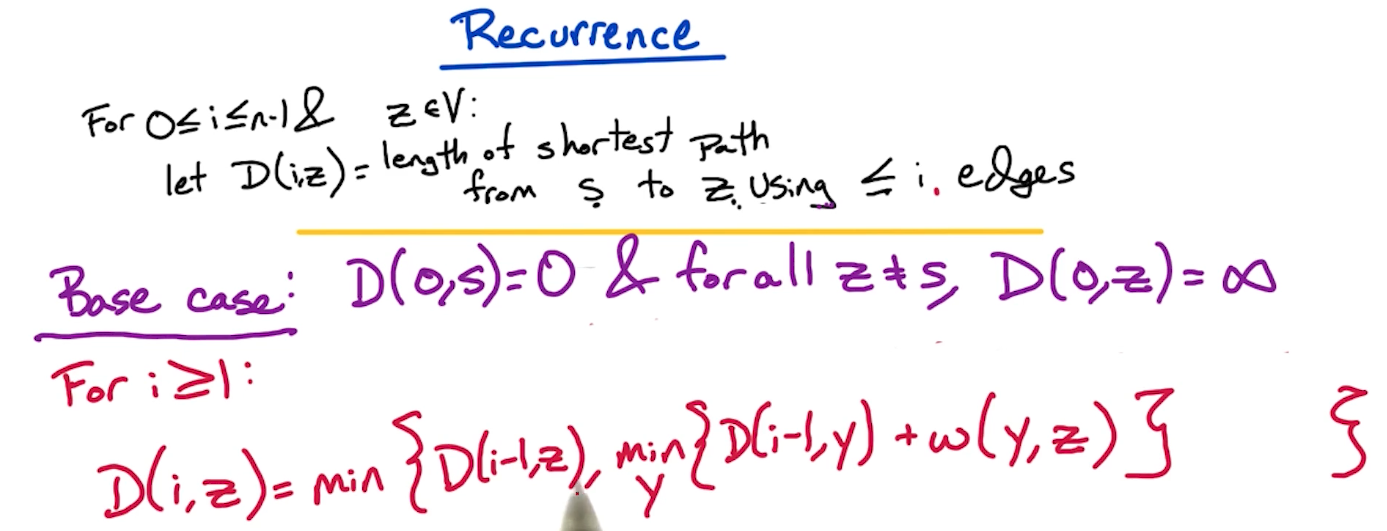 Recurrence
For 0≤i≤n-1 & z∈V:
let D(i,z) = length of shortest path
from s to z using ≤ i edges
Base case: D(0,s)=0 & for all z≠s, D(0,z)=∞
For i≥1:
D(i,z)= min {D(i-1,z), min {D(i-1,y) + w(y,z)} }
y